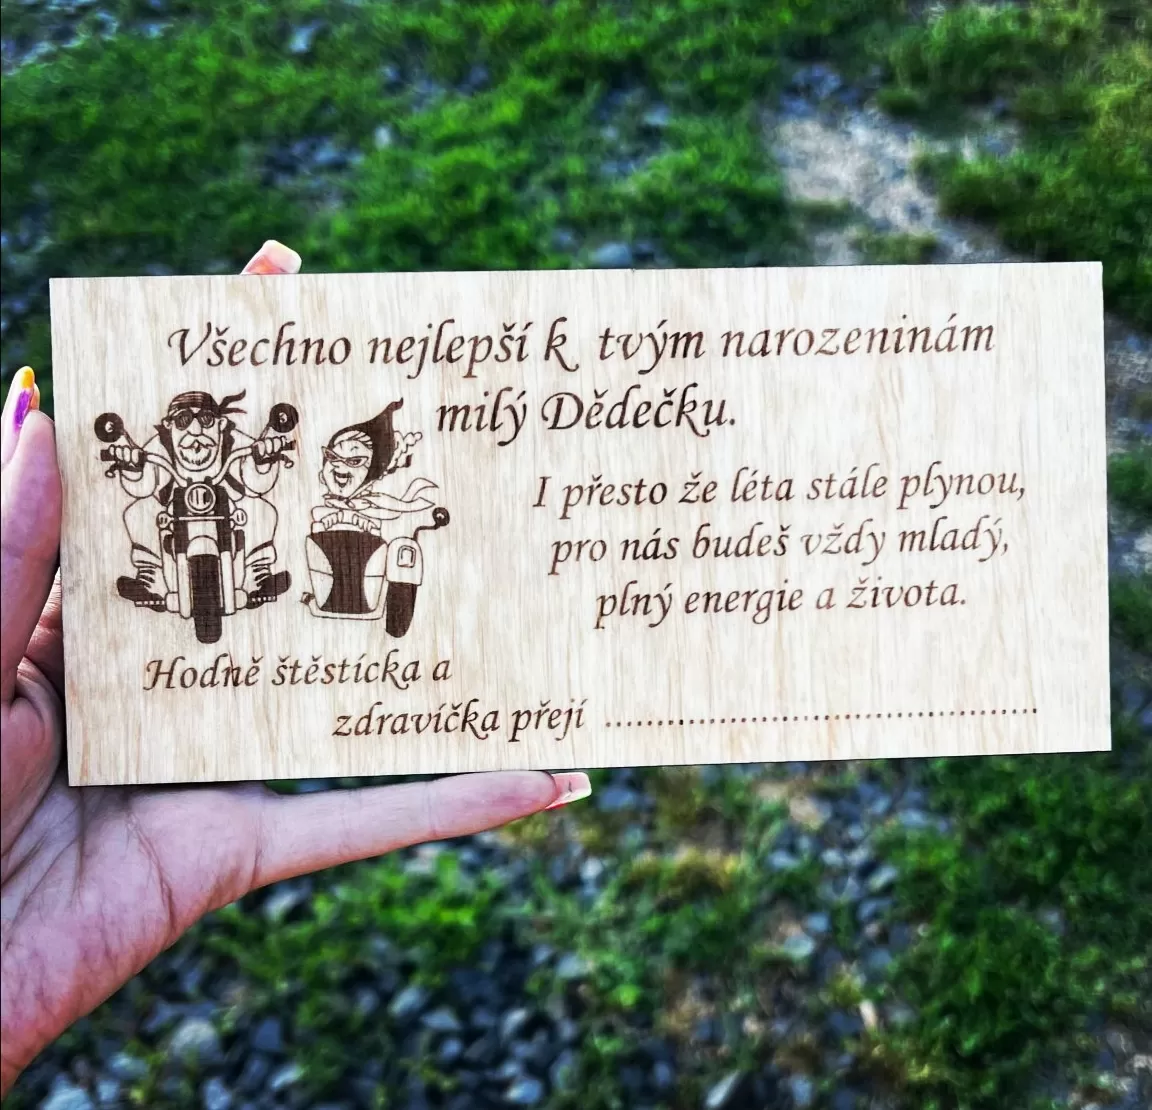 Všechno nejlepší k tvým narozeninám
milý Dědečku.
I přesto že léta stále plynou,
pro nás budeš vždy mladý,
plný energie a života.
Hodně štěstícka a
zdravíčka přejí ..........................................